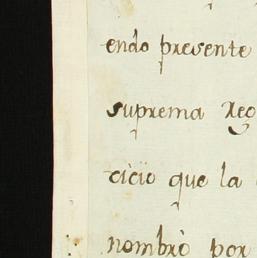 endo presente
suprema Reg
cicio que la
nombrò por